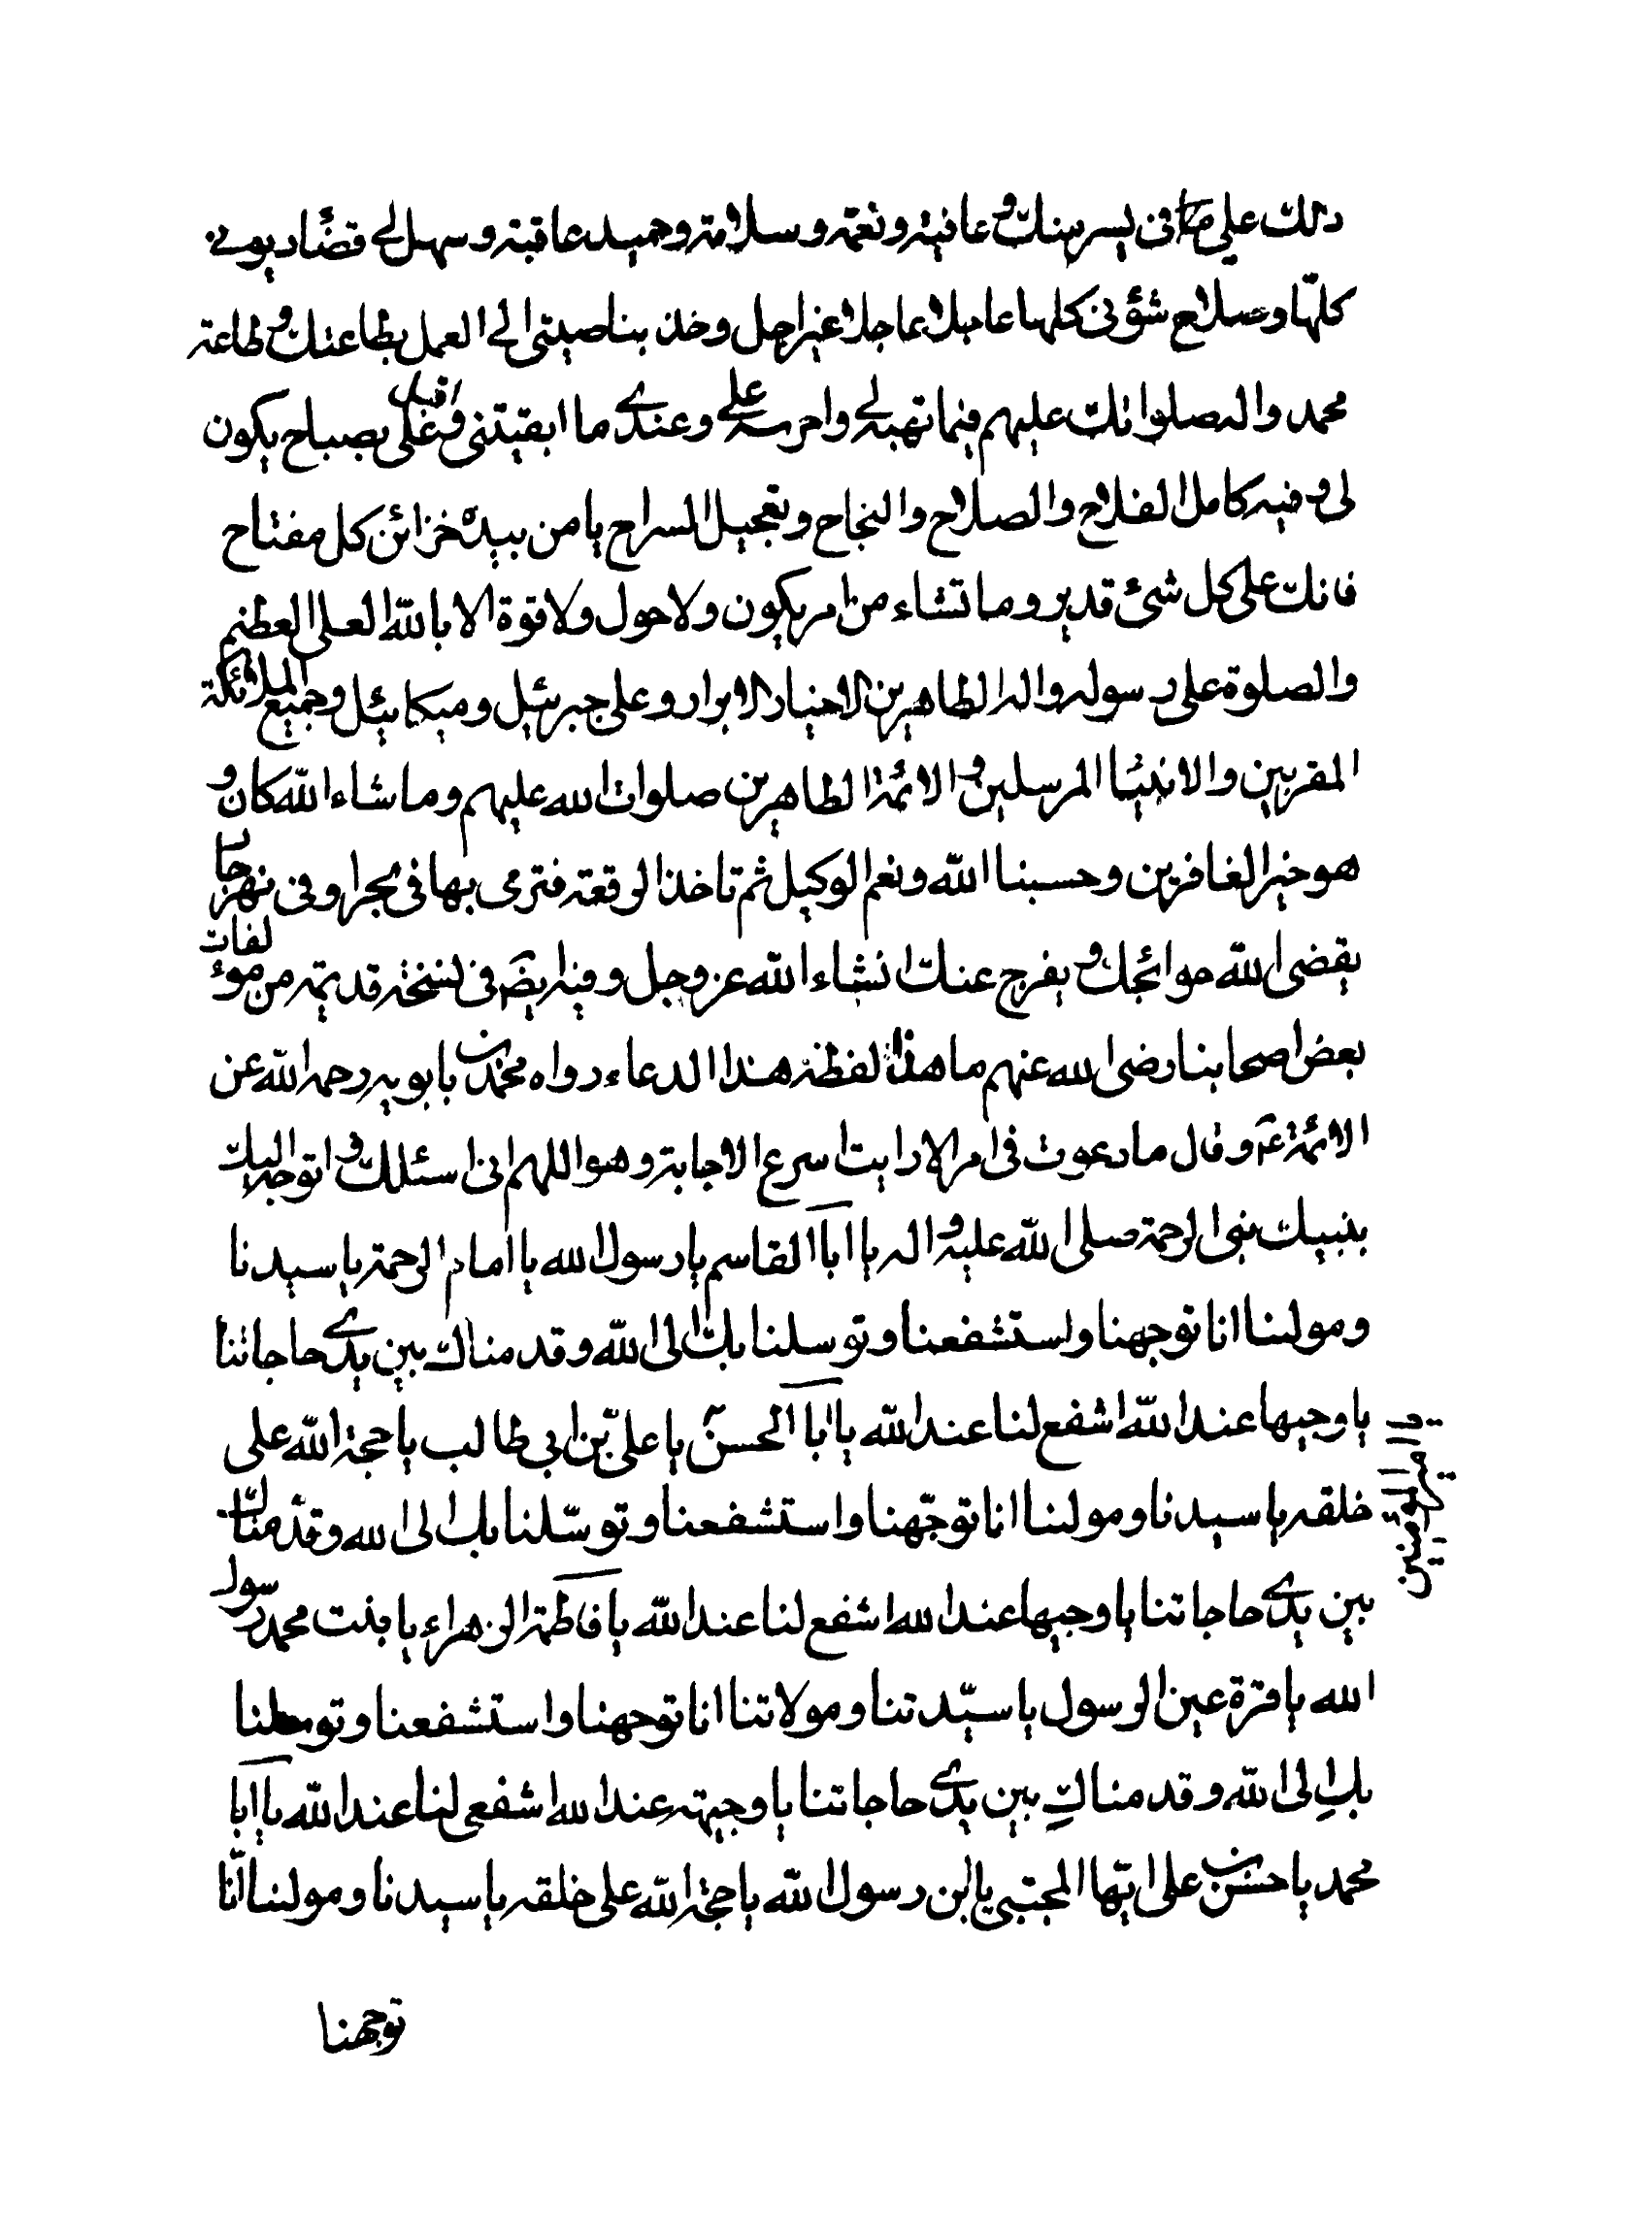 ذلك علي ما في يسر منك و عافية و نعمة و سلامة و حميد عاقبة و سهل لي قضاء ديوني
كلها و صلاح شؤني كلها عاجلا عاجلا غير اجل و خذ بناصيتي الي العمل بطاعتك و طاعة
محمد و اله صلواتك عليهم فيما تهبه لي و احرسه علي و عندي ما ابقيتني و اقبل علي بصباح يكون
لي و فيه كامل الفلاح و الصلاح و النجاح و تعجيل السراح يا من بيده خزائن كل مفتاح
فانك على كل شئ قدير و ما تشاء من امر يكون و لا حول و لا قوة الا بالله العلي العظيم
و الصلوة على رسوله و اله الطاهرين الاخيار الابرار و على جبرئيل و ميكائيل و جميع الملائكة
المقربين و الانبياء المرسلين و الائمة الطاهرين صلوات الله عليهم و ما شاء الله كان و
هو خير الغافرين و حسبنا الله و نعم الوكيل ثم تاخذ الرقعة فترمي بها في بحر او في نهر جار
يقضي الله حوائجك و يفرج عنك انشاء الله عز و جل و فيه ايضا في نسخة قديمة من مؤلفات
بعض اصحابنا رضي الله عنهم ما هذا لفظه هذا الدعاء رواه محمد بن بابويه رحمه الله عن
الائمة ع و قال ما دعوت في امر الا رايت سرع الاجابة و هو اللهم اني اسئلك و اتوجه اليك
بنبيك نبي الرحمة صلى الله عليه و اله يا ابا القاسم يا رسول الله يا امام الرحمة يا سيدنا
و مولينا انا توجهنا و استشفعنا و توسلنا بك الى الله و قدمناك بين يدي حاجاتنا
يا وجيها عند الله اشفع لنا عند الله يا ابا الحسن يا امير المؤمنين يا علي بن ابي طالب يا حجة الله على
خلقه يا سيدنا و مولينا انا توجّهنا و استشفعنا و توسّلنا بك الى الله و قدّمناك
بين يدي حاجاتنا يا وجيها عند الله اشفع لنا عند الله يا فاطمة الزهراء يا بنت محمد رسول
الله يا قرة عين الرسول يا سيّدتنا و مولاتنا انا توجهنا و استشفعنا و توسلنا
بكِ الى الله و قدمناكِ بين يدي حاجاتنا يا وجيهة عند الله اشفعي لنا عند الله يا ابا
محمد يا حسن بن علي ايها المجتبى يا ابن رسول الله يا حجة الله على خلقه يا سيدنا و مولينا انّا
توجهنا